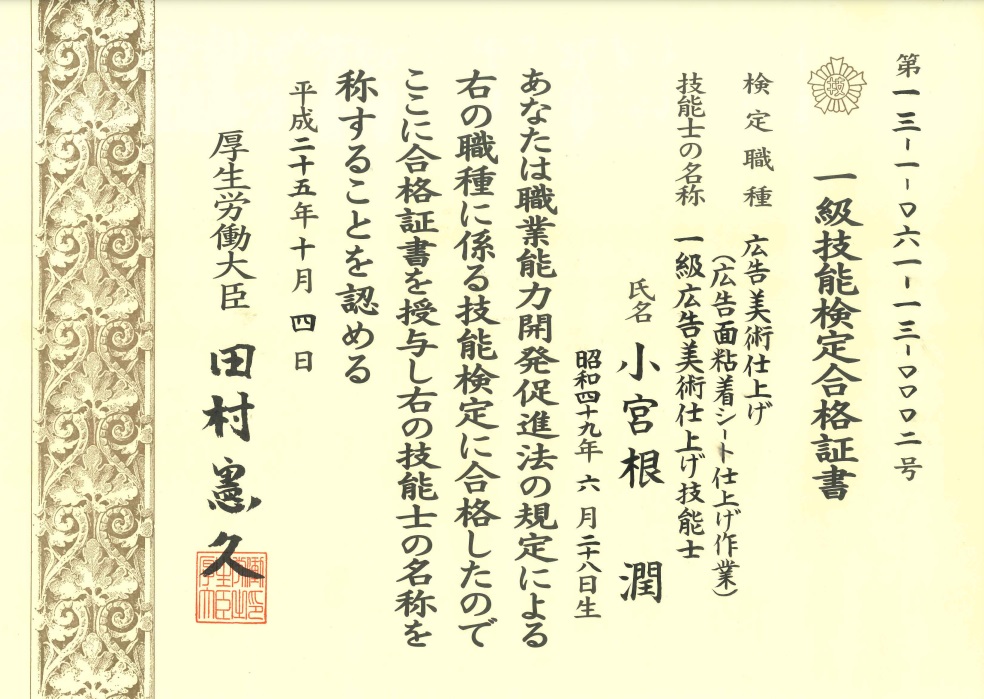 第一三-一-〇六一-一三-〇〇〇二号
技
一級技能検定合格証書
検定職種 広告美術仕上げ
(広告面粘着シート仕上げ作業)
技能士の名称 一級広告美術仕上げ技能士
氏名 小宮根 潤
昭和四十九年 六月二十八日生
あなたは職業能力開発促進法の規定による
右の職種に係る技能検定に合格したので
ここに合格証書を授与し右の技能士の名称を
称することを認める
平成二十五年十月 四日
厚生労働大臣 田村憲久